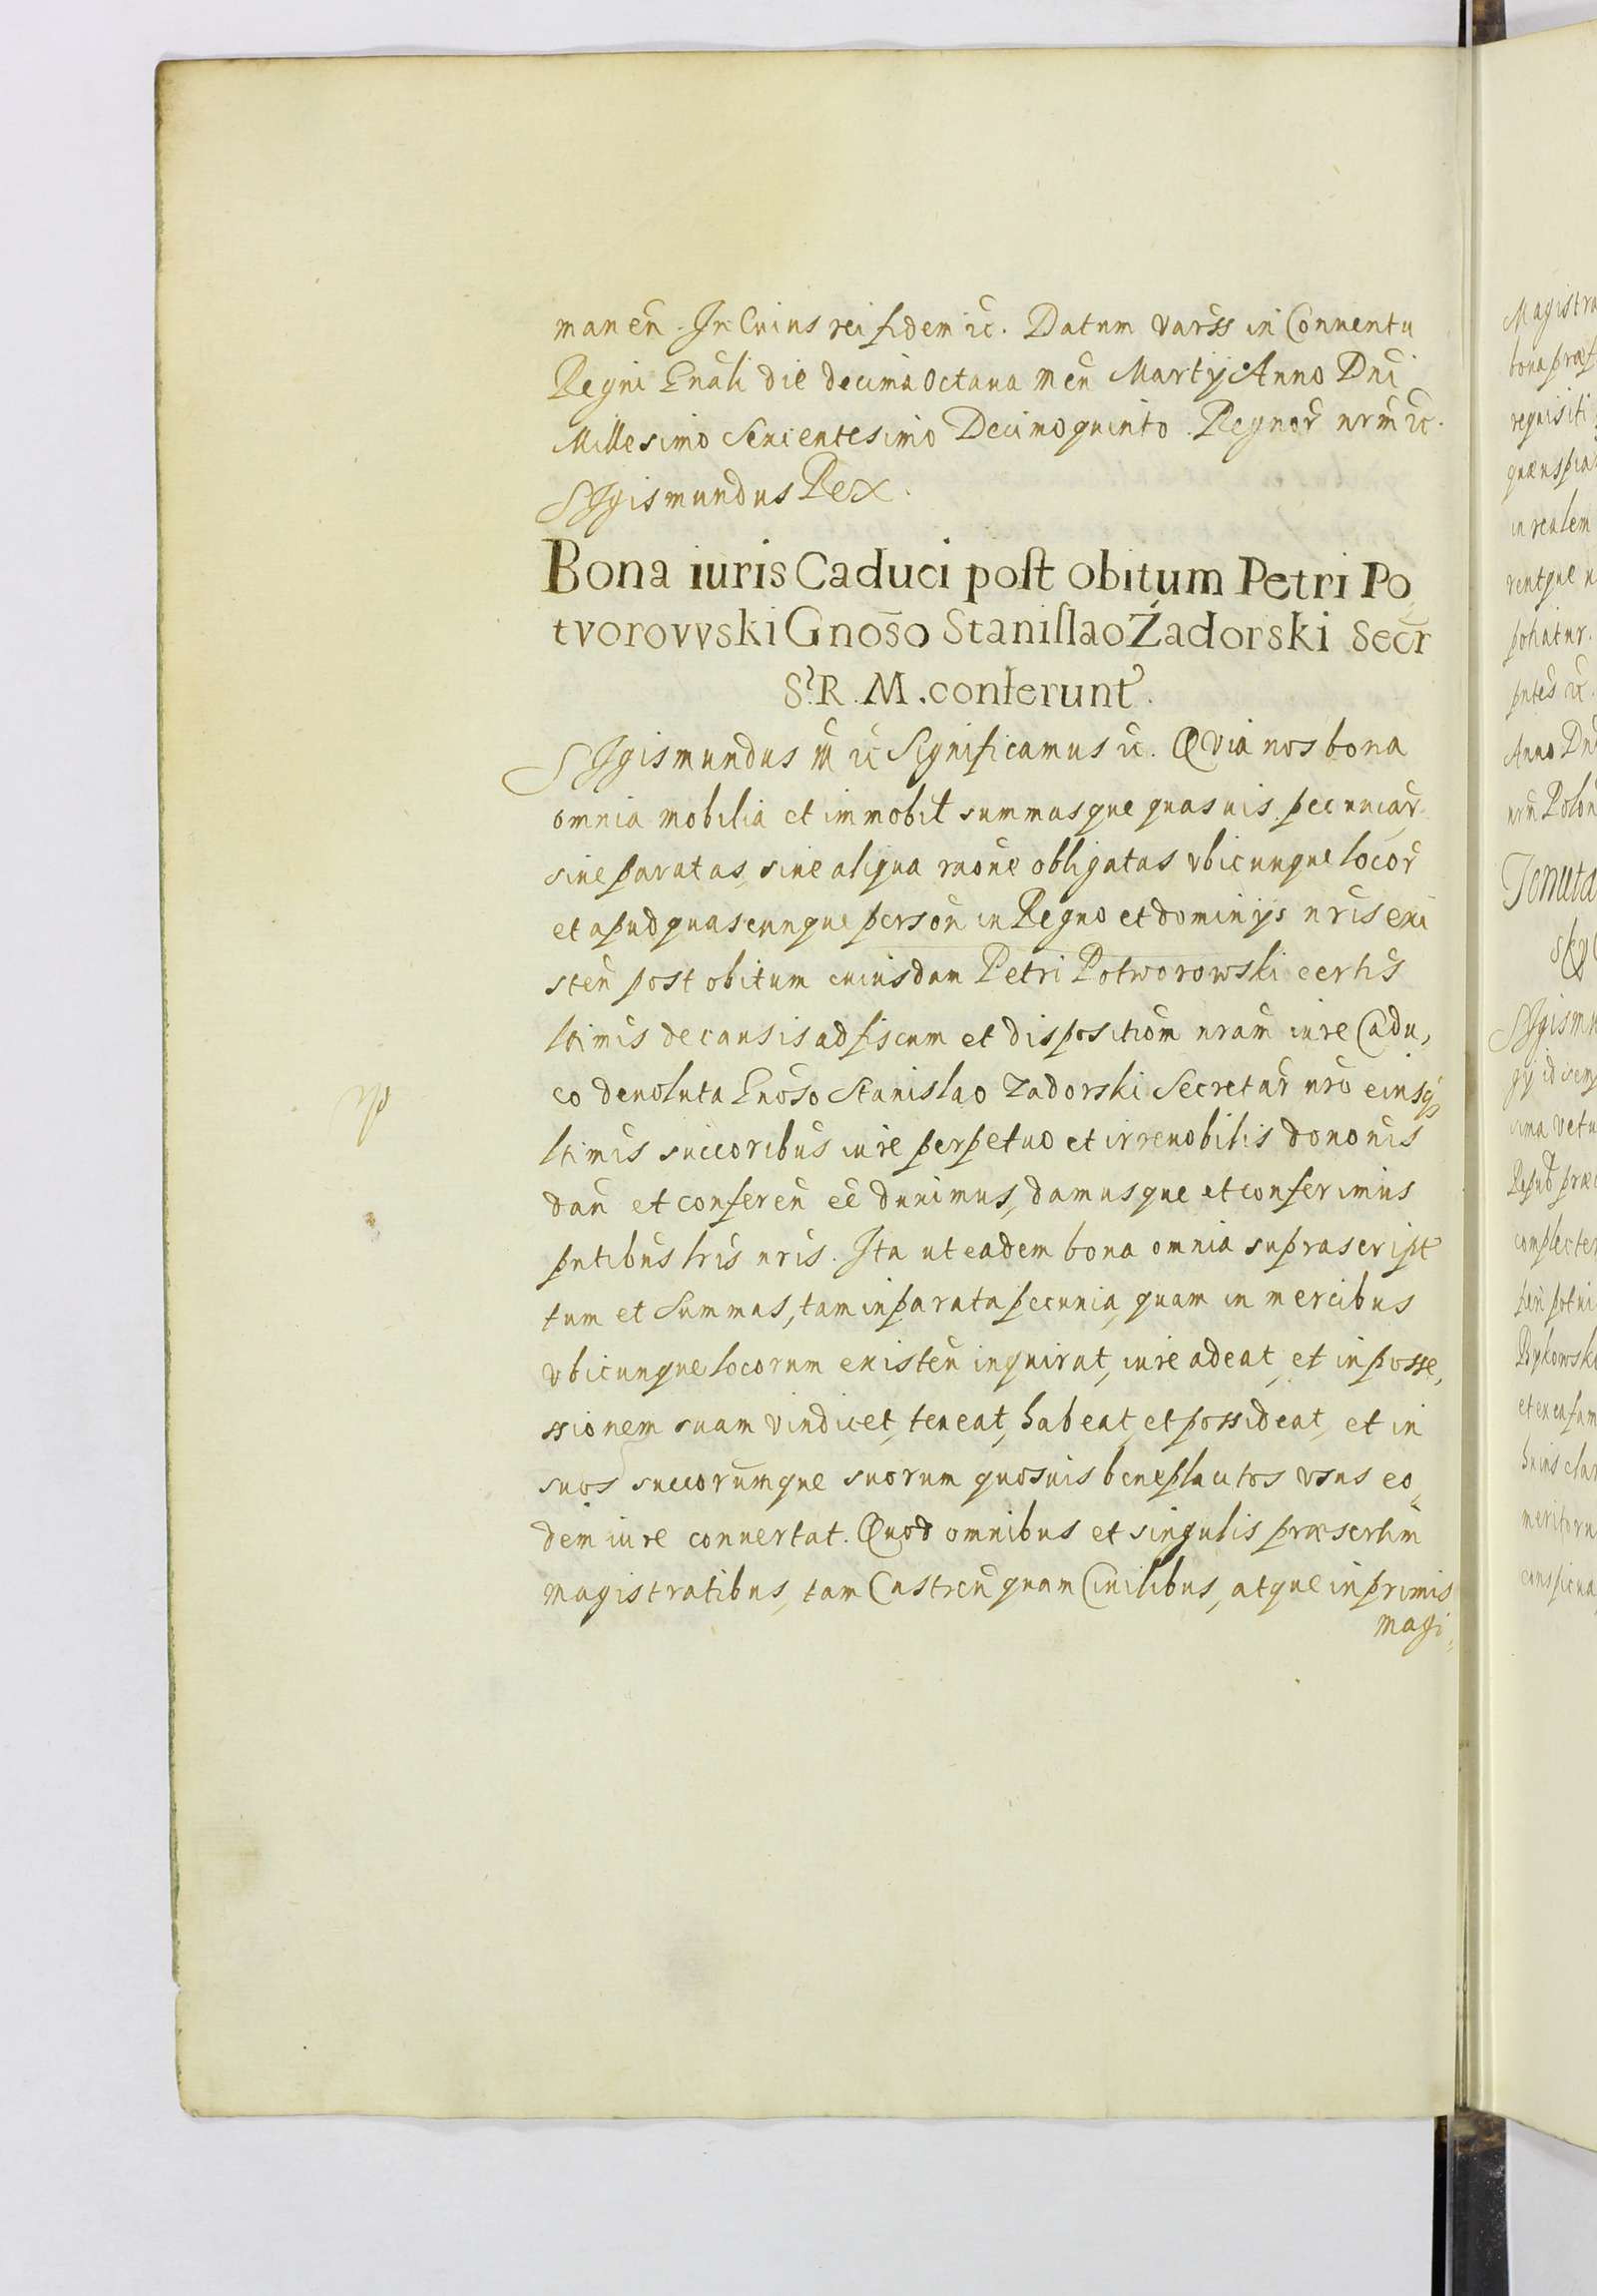 manen̄. In Cuius rei fidem ꝛc. Datum varss̄ in Conuentu
Regni Gn̄ali die decima Octaua men̄ Martij Anno Dn̄i
Millesimo Sexcentesimo Decimoquinto. Regnor̄ nr̄m̄ ꝛc.
SIgismundus Rex.
Bona iuris Caduci post obitum Petri Po,
tvorovvski Gnos̄o Stanislao Żadorski Secr̄
S. R. M. conferunt̄.
SIgismundus m̄ ꝛc Significamus ꝛc. QVia nos bona
omnia mobilia et immobil̄ summasque quasuis pecuniar̄
siue paratas, siue aliqua rāone obligatas vbicunque locor̄
et apud quascunque person̄ in Regno et dominijs nr̄is exi
sten̄ post obitum cuiusdam Petri Potworowski certis
ltimis de causis ad fiscum et dispositiom̄ nram̄ iure Cadu,
co deuoluta Gnos̄o Stanislao Zadorski Secretar̄ nr̄o eiusq̨
ltimis succoribus iure perpetuo et irreuobilis donōnis
dan̄ et conferen̄ ēē duximus, damusque et conferimus
pn̄tibus lris nris. Ita ut eadem bona omnia suprascript̄
tum et Summas, tam in parata pecunia, quam in mercibus
vbicunque locorum existen̄ inquirat, iure adeat, et in posse,
ssionem suam vindicet, teneat, habeat, et possideat, et in
suos succorumque suorum quosuis beneplacitos vsus eo,
dem iure conuertat. Quod omnibus et singulis præsertim
Magistratibus, tam Castren̄ quam Ciuilibus, atque inprimis
Magi,
Magistra
bona præf
requisiti
quæuspia
in realem
rentque n
potiatur.
pn̄tes ꝛc.
Anno Dn̄i
nrm̄ Polon
Tenuta
sky
SIgismu
gij id sem
sima vetu
Repub præ
complecte
potui
Rykowski
huius cla
meritoru
conspicua